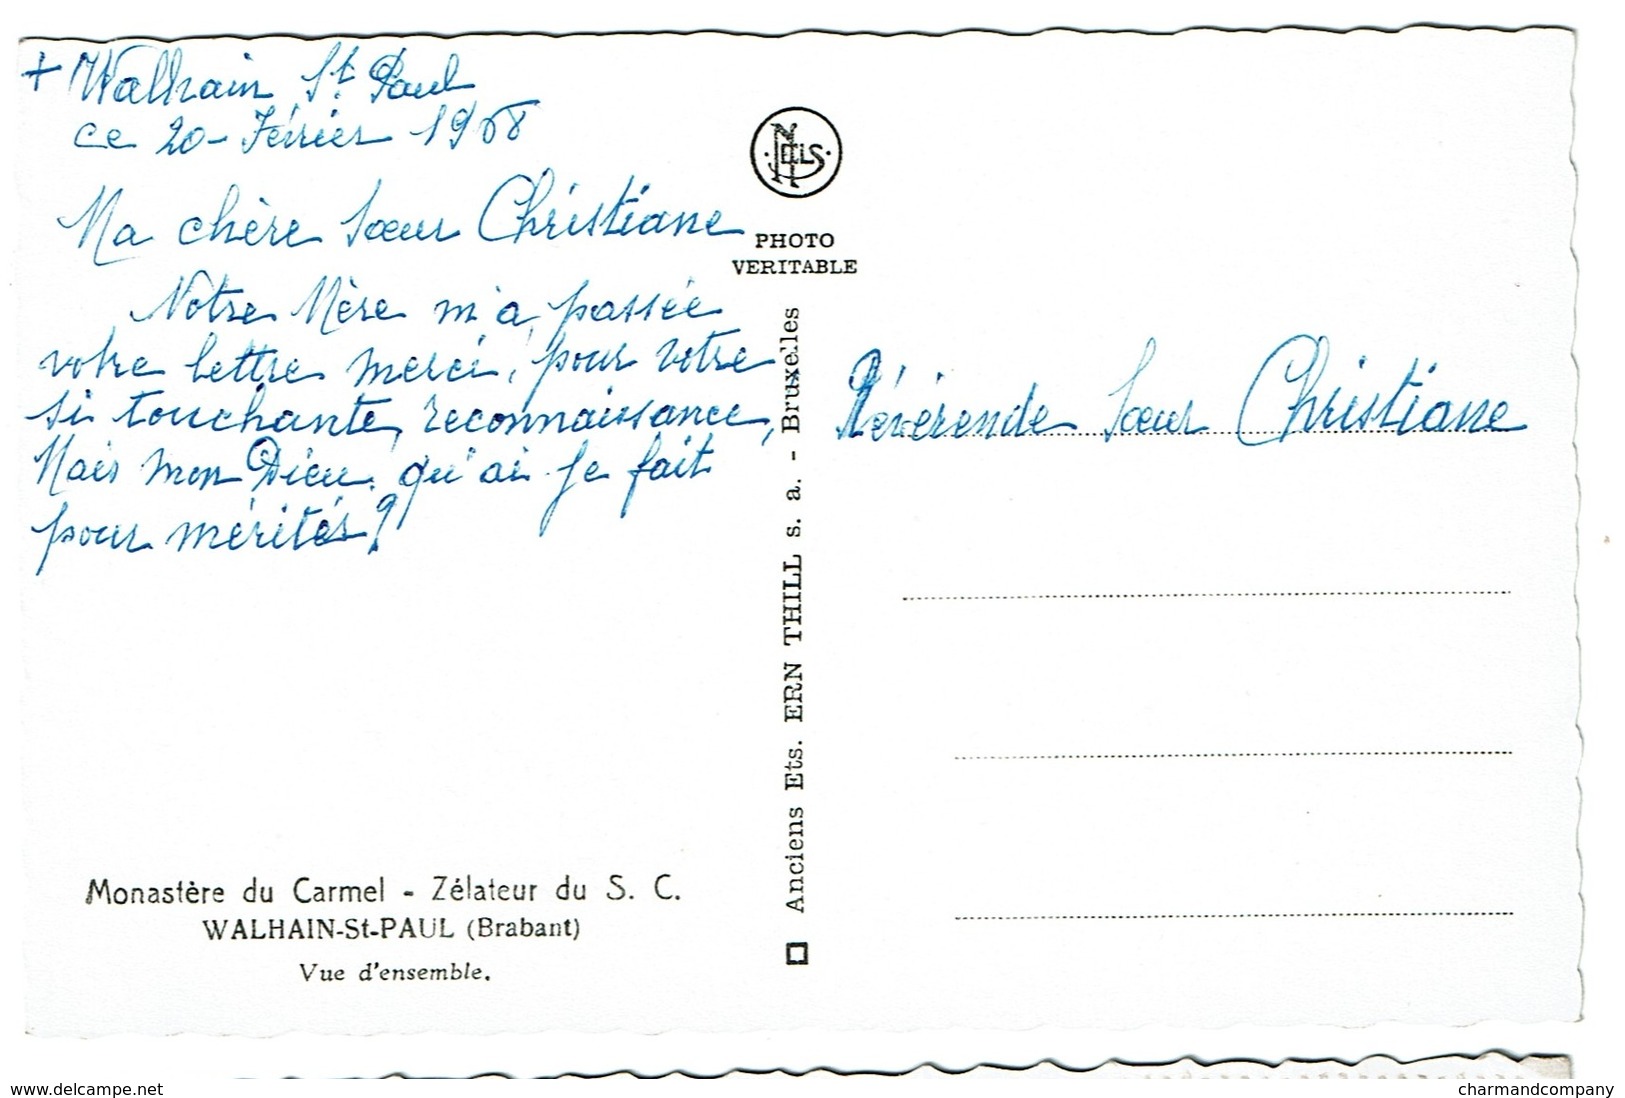 + Walhain St. Paul
ce 20 - Février 1968
Ma chère Sœur Christiane
Notre Mère m'a passée
votre lettre merci, pour votre
si touchante, reconnaissance,
Mais mon Dieu, qu'ai je fait
pour mérités?
NELS
PHOTO
VERITABLE
Anciens Ets. ERN THILL s. a. - Bruxelles
Révérende Sœur Christiane
Monastère du Carmel - Zélateur du S. C.
WALHAIN-St-PAUL (Brabant)
Vue d'ensemble.
www.delcampe.net
charmandcompany